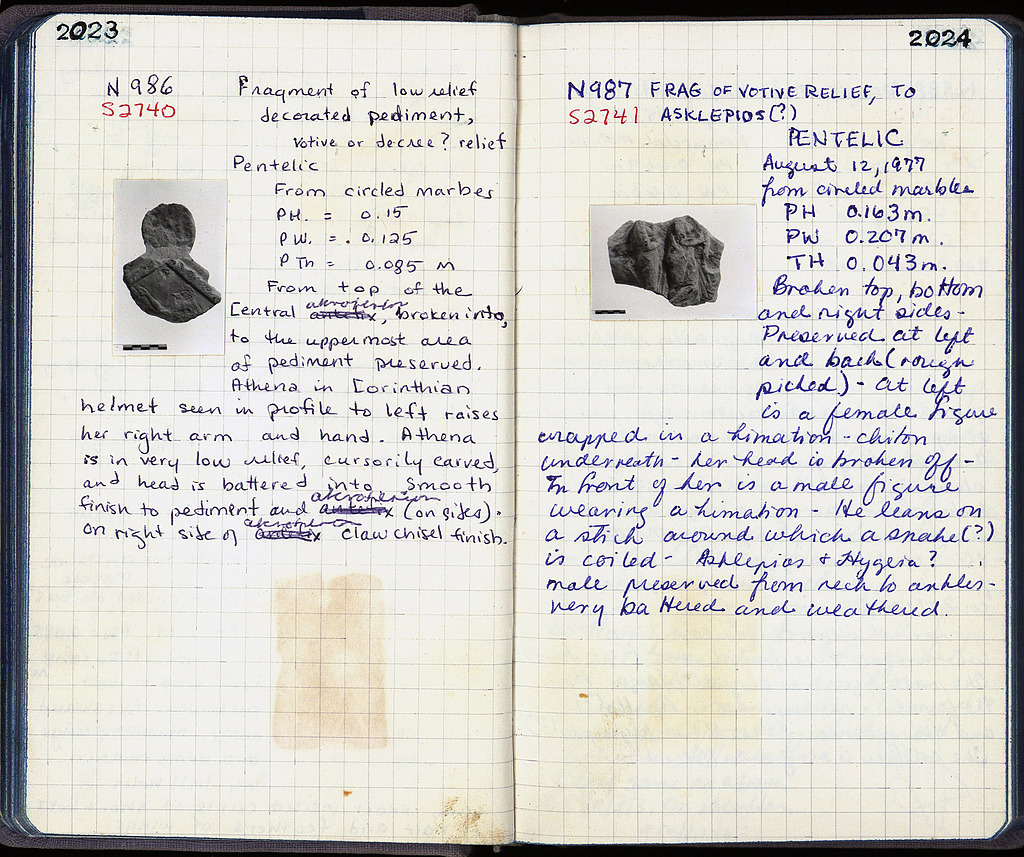 2023
N 986
S2740
Fragment of low relief
decorated pediment,
votive or decree? relief
Pentelic
From circled marbes
PH. = 0.15
PW. = . 0.125
P Th = 0.085 m
From top of the
Central akroterion antefix, broken into,
to the uppermost area
of pediment preserved.
Athena in Corinthian
helmet seen in profile to left raises
her right arm and hand. Athena
is in very low relief, cursorily carved,
and head is battered into smooth
finish to pediment and akroterion antefix (on sides).
On right side of akroterion antefix claw chisel finish.
2024
N987 FRAG OF VOTIVE RELIEF, TO
S2741 ASKLEPIOS(?)
PENTELIC
August 12, 1977
from circled marbles
PH 0.163 m.
PW 0.207 m.
TH 0.043 m.
Broken top, bottom
and right sides -
Preserved at left
and back (rough
picked) - At left
is a female figure
wrapped in a himation - chiton
underneath - her head is broken off -
In front of her is a male figure
wearing a himation - He leans on
a stick around which a snake (?)
is coiled - Asklepios & Hygeia?
male preserved from neck to ankles -
very battered and weathered.